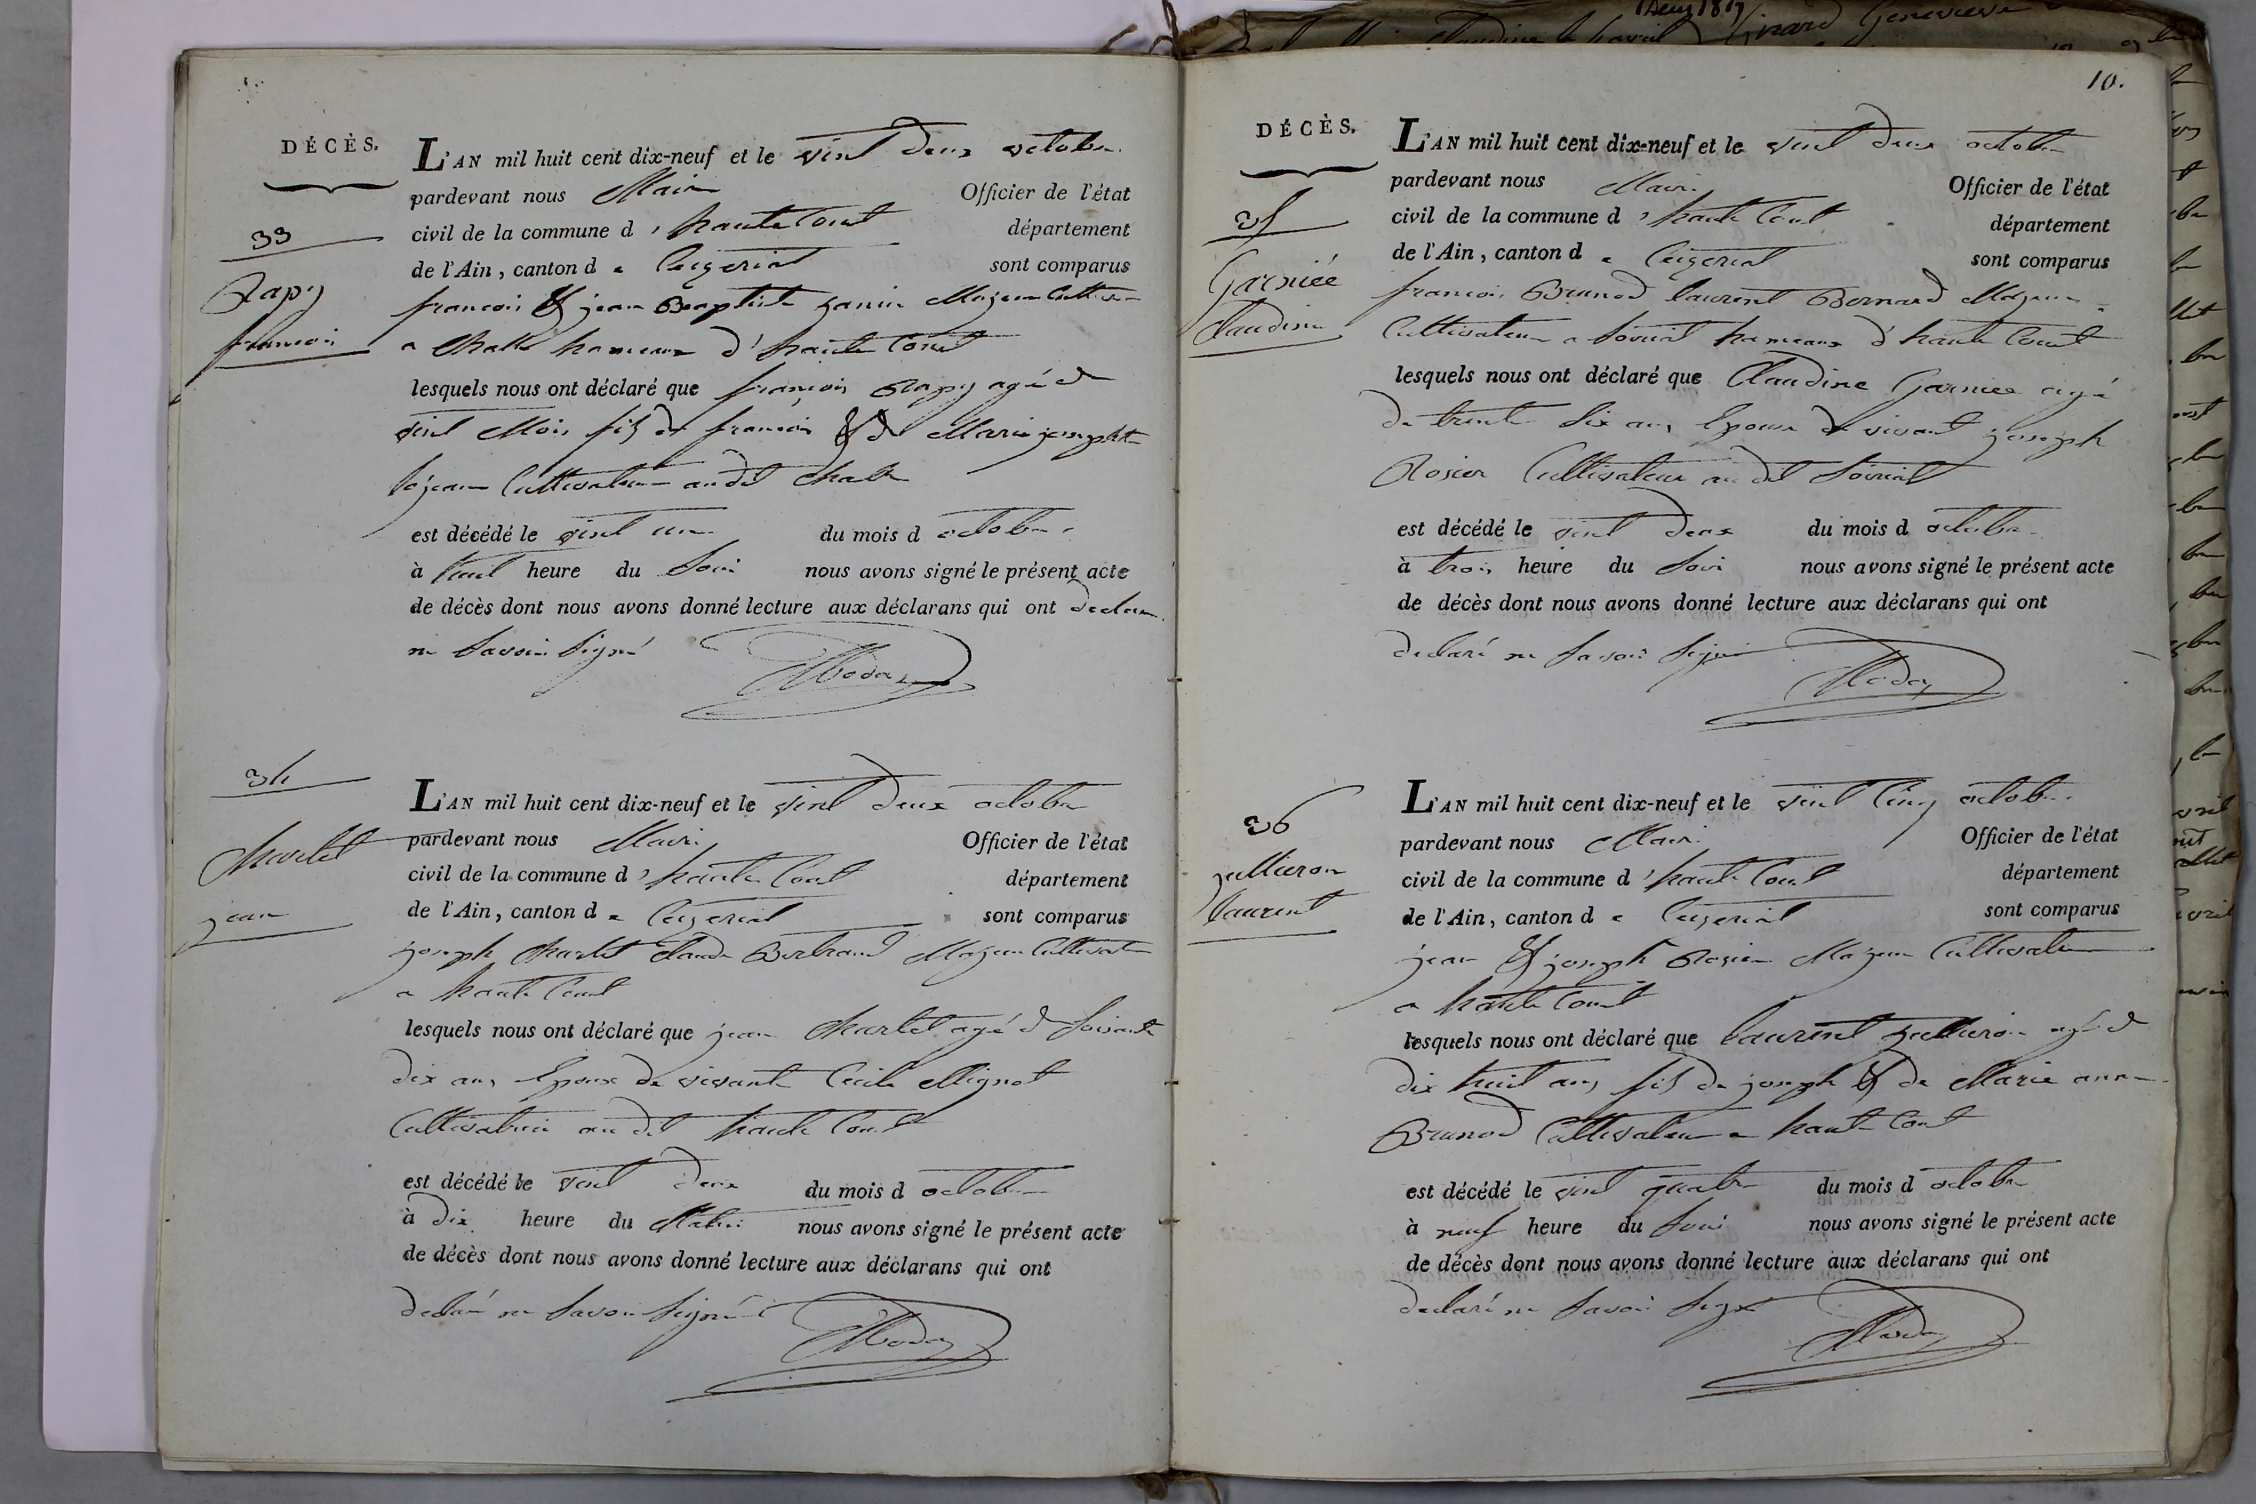 DÉCÈS.
33
Rapy
francois
L'AN mil huit cent dix-neuf et le vint deux octobre
pardevant nous Maire Officier de l'état
civil de la commune d'haute Court département
de l'Ain, canton de Ceyzeriat sont comparus
francois & jean Baptiste Majeur Cultivateur
a Challe hameaux d'haute Court
lesquels nous ont déclaré que françois Rapy agé de
vint Mois fils de francois & de Marie josephte
Cultivateur audit Challe
est décédé le vint un du mois d octobre
à huit heure du Soir nous avons signé le présent acte
de décès dont nous avons donné lecture aux déclarans qui ont declaré
ne Savoir Signé
34
Charlet
jean
L'AN mil huit cent dix-neuf et le vint deux octobre
pardevant nous Maire Officier de l'état
civil de la commune d'haute Court département
de l'Ain, canton de Ceyzeriat sont comparus
joseph Charlet Claude Bertrand Majeur Cultivateur
a haute Court
lesquels nous ont déclaré que jean Charlet agé de Soixante
dix ans Epoux de vivante Cecile Mignot
Cultivatrice au dit haute Court
est décédé le vint deux du mois d octobre
à dix heure du Matin nous avons signé le présent acte
de décès dont nous avons donné lecture aux déclarans qui ont
declaré ne Savoir Signé
10.
DÉCÈS.
35
Garniée
Claudine
L'AN mil huit cent dix-neuf et le vint deux octobre
pardevant nous Maire Officier de l'état
civil de la commune d'haute Court département
de l'Ain, canton de Ceyzeriat sont comparus
francois Brunod laurent Bernard Majeur
Cultivateur a hameaux d'haute Court
lesquels nous ont déclaré que Claudine Garniée agé
de trente Six ans Epouse de vivant joseph
Rosier Cultivateur au dit
est décédé le vint deux du mois d octobre
à trois heure du Soir nous avons signé le présent acte
de décès dont nous avons donné lecture aux déclarans qui ont
declaré ne Savoir Signé
36
jullieron
laurent
L'AN mil huit cent dix-neuf et le vint Cinq octobre
pardevant nous Maire Officier de l'état
civil de la commune d'haute Court département
de l'Ain, canton de Ceyzeriat sont comparus
jean & joseph Rosier Majeur Cultivateur
a haute Court
lesquels nous ont déclaré que laurent jullieron agé de
dix huit ans fils de joseph & de Marie anne
Brunod Cultivateur a haute Court
est décédé le vint quatre du mois d octobre
à neuf heure du Soir nous avons signé le présent acte
de décès dont nous avons donné lecture aux déclarans qui ont
declaré ne Savoir Signé